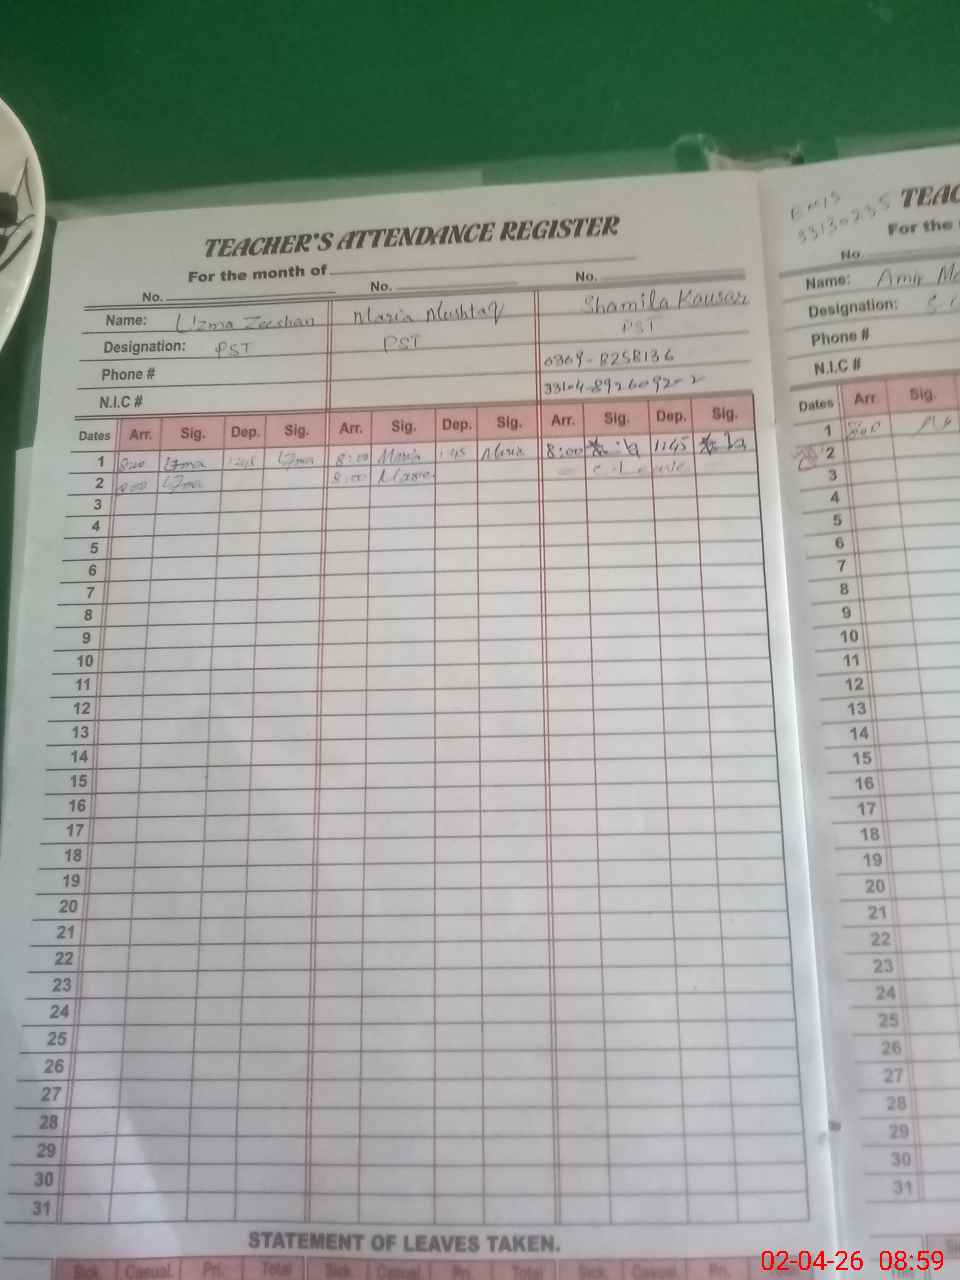 TEACHER'S ATTENDANCE REGISTER
For the month of
No. No. No.
Name: Uzma Zeeshan Maria Mushtaq Shamila Kausar
Designation: PST PST PST
Phone # 0309-8258136
N.I.C #
Dates Arr. Sig. Dep. Sig. Arr. Sig. Dep. Sig. Arr. Sig. Dep. Sig.
1 8:00 Uzma 1:45 Uzma 8:00 Maria 1:45 Maria 8:00 1:45
2 8:00 Uzma 8:00 Maria C-Leave
3
4
5
6
7
8
9
10
11
12
13
14
15
16
17
18
19
20
21
22
23
24
25
26
27
28
29
30
31
STATEMENT OF LEAVES TAKEN.
Sick. Casual. Pri. Total Sick. Casual. Pri. Total Sick. Casual. Pri. Total
EMIS
33130235
TEAC
For the
No.
Name: Amir
Designation:
Phone #
N.I.C #
Dates Arr. Sig.
1 8:00
2
3
4
5
6
7
8
9
10
11
12
13
14
15
16
17
18
19
20
21
22
23
24
25
26
27
28
29
30
31
02-04-26 08:59